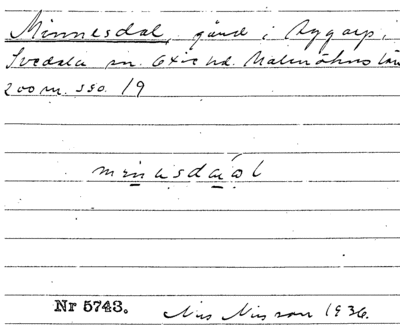 Minnesdal, gård i Aggarp,
Svedala sn. Oxie hd. Malmöhus län
200 m. SSO. 19
Nr 5743. Nils Nilsson 1936.